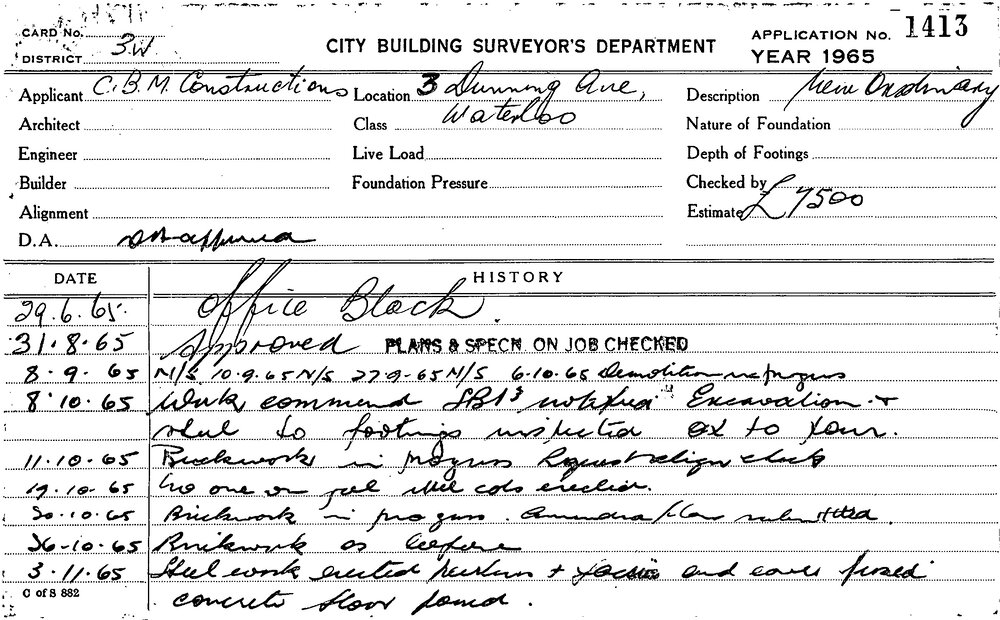 CARD No.
DISTRICT 3W
CITY BUILDING SURVEYOR'S DEPARTMENT
APPLICATION No. 1413
YEAR 1965
Applicant C.B.M. Constructions
Location 3 Dunning Ave,
Waterloo
Description New Ordinary
Architect
Class
Nature of Foundation
Engineer
Live Load
Depth of Footings
Builder
Foundation Pressure
Checked by
Alignment
Estimate £7500
D.A.
DATE HISTORY
29.6.65. Office Block.
31.8.65 Approved PLANS & SPECN. ON JOB CHECKED
8.9.65 N/S 10.9.65 N/S 27-9-65 N/S 6-10.65 Demolition in progress
8.10.65 Work commencd notified Excavation +
steel to footings inspected OK to pour.
11.10.65 Brickwork in progress Request align check
19.10.65 No one on job steel cols erection.
20.10.65 Brickwork in progress. submitted.
26-10.65 Brickwork as before
3.11.65 Steel work erected and eaves fixed
concrete floor poured.
C of S 882